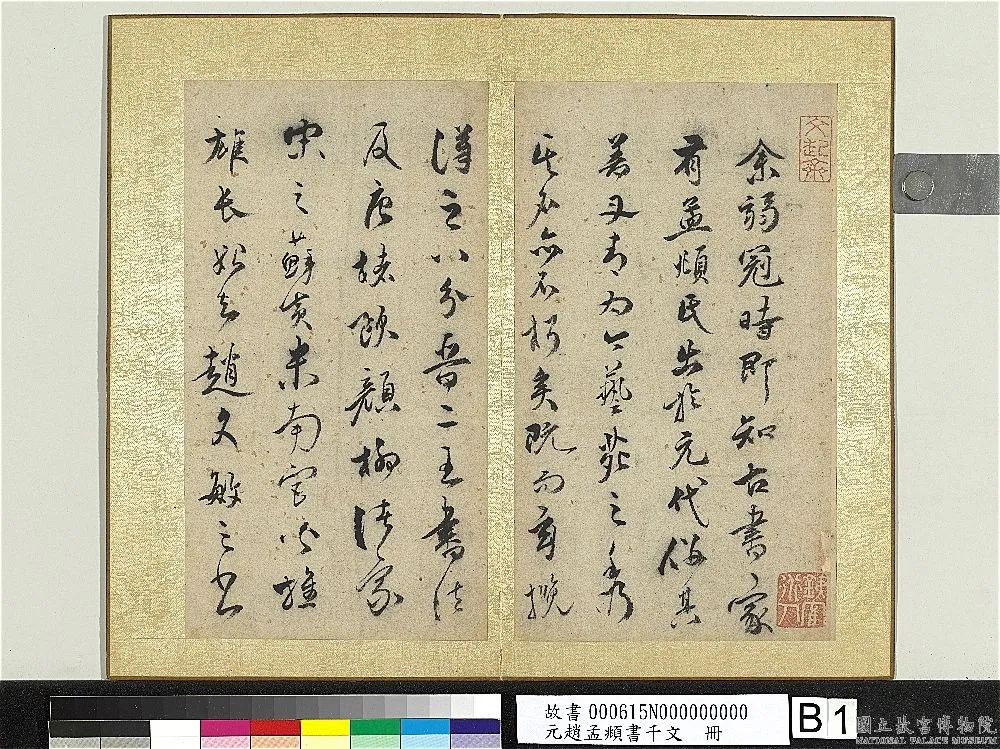 余弱冠時即知古書家
有孟頫氏出於元代偽其
善又有為今藝苑之秀乃
其名亦不朽矣既而育撫
漢之八分晉二王書法
及唐褚歐顏柳法家
宋之蘇黃米南宮皆雄
雄長如趙文敏之書
故書 000615N000000000
元趙孟頫書千文 冊
B 1
國立故宮博物院
NATIONAL PALACE MUSEUM